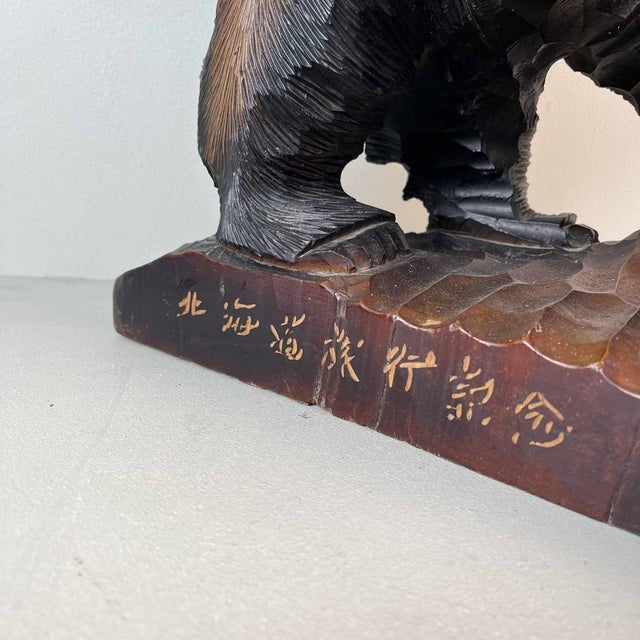 北海道旅行記念